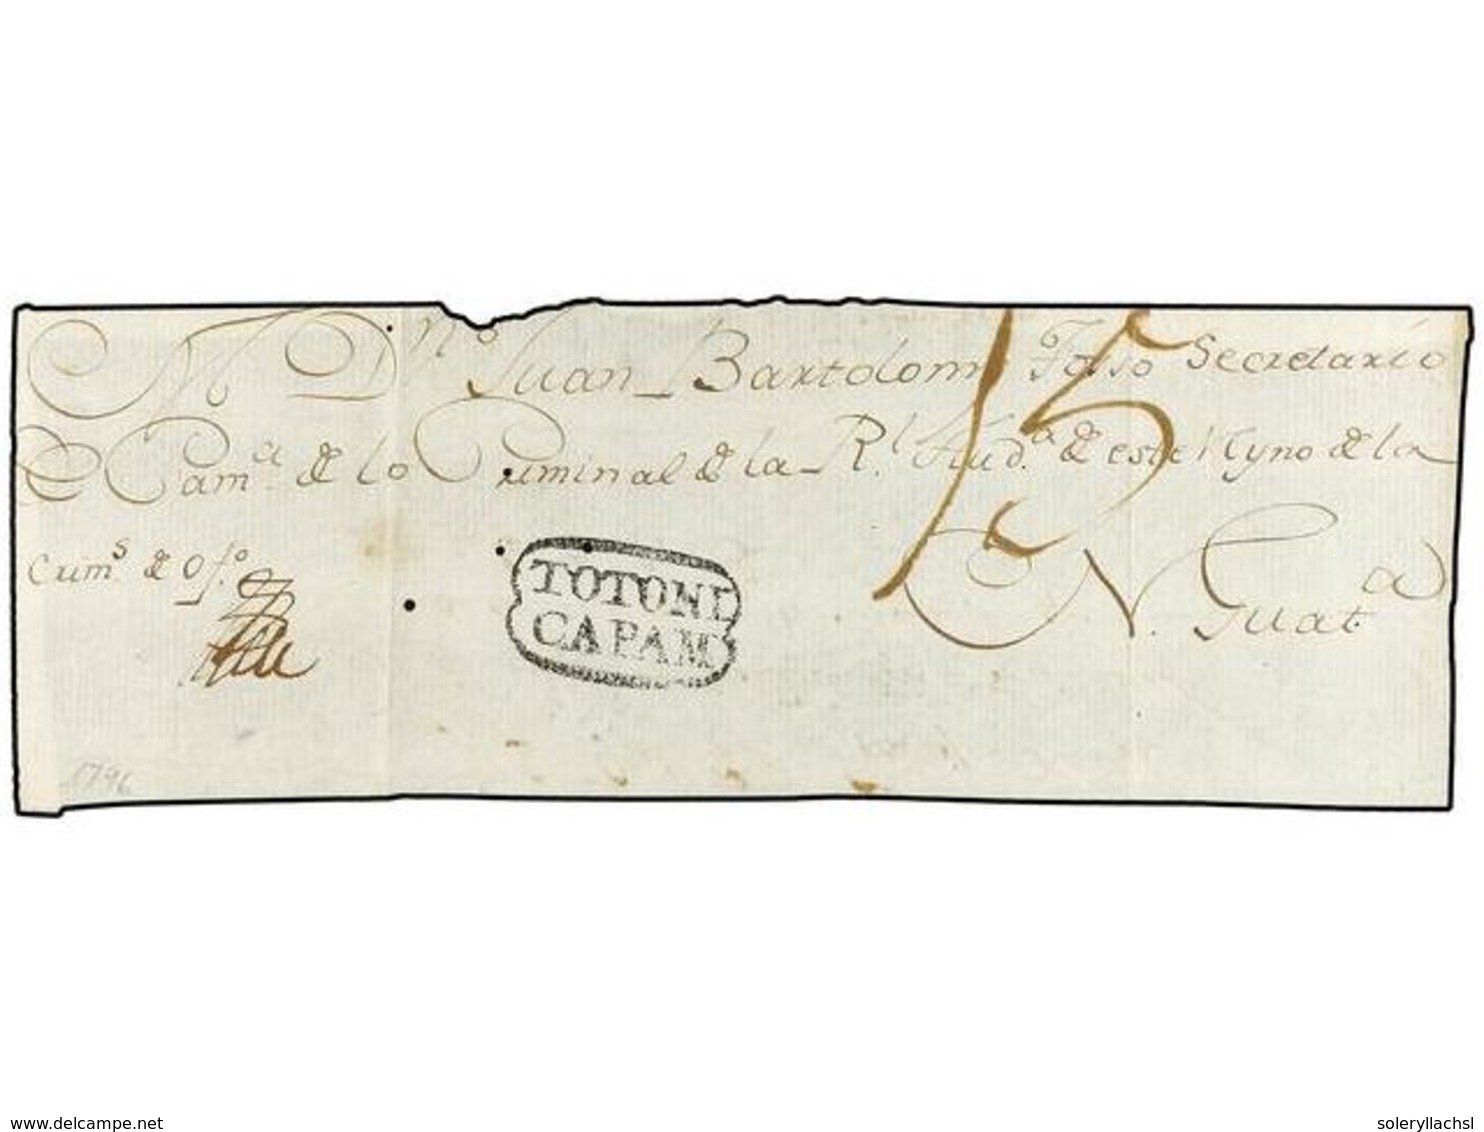 A D.n Juan Bartolomé Secretario
de Cam.a de lo Criminal de la R.l Aud.a de este Reyno de la
N. Guat.a
Cum.s de Of.o
15
TOTONI
CAPAM
1796
www.delcampe.net
soleryllachsl